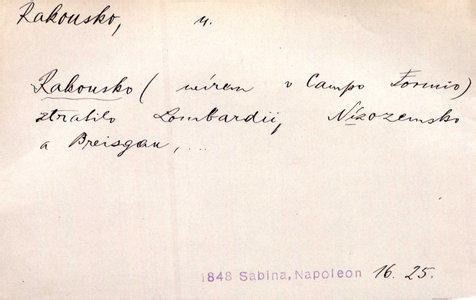 Rakousko, n.
Rakousko (mírem v Campo Formio)
ztratilo Lombardii, Nizozemsko
a Breisgau, ...
1848 Sabina, Napoleon 16. 25.